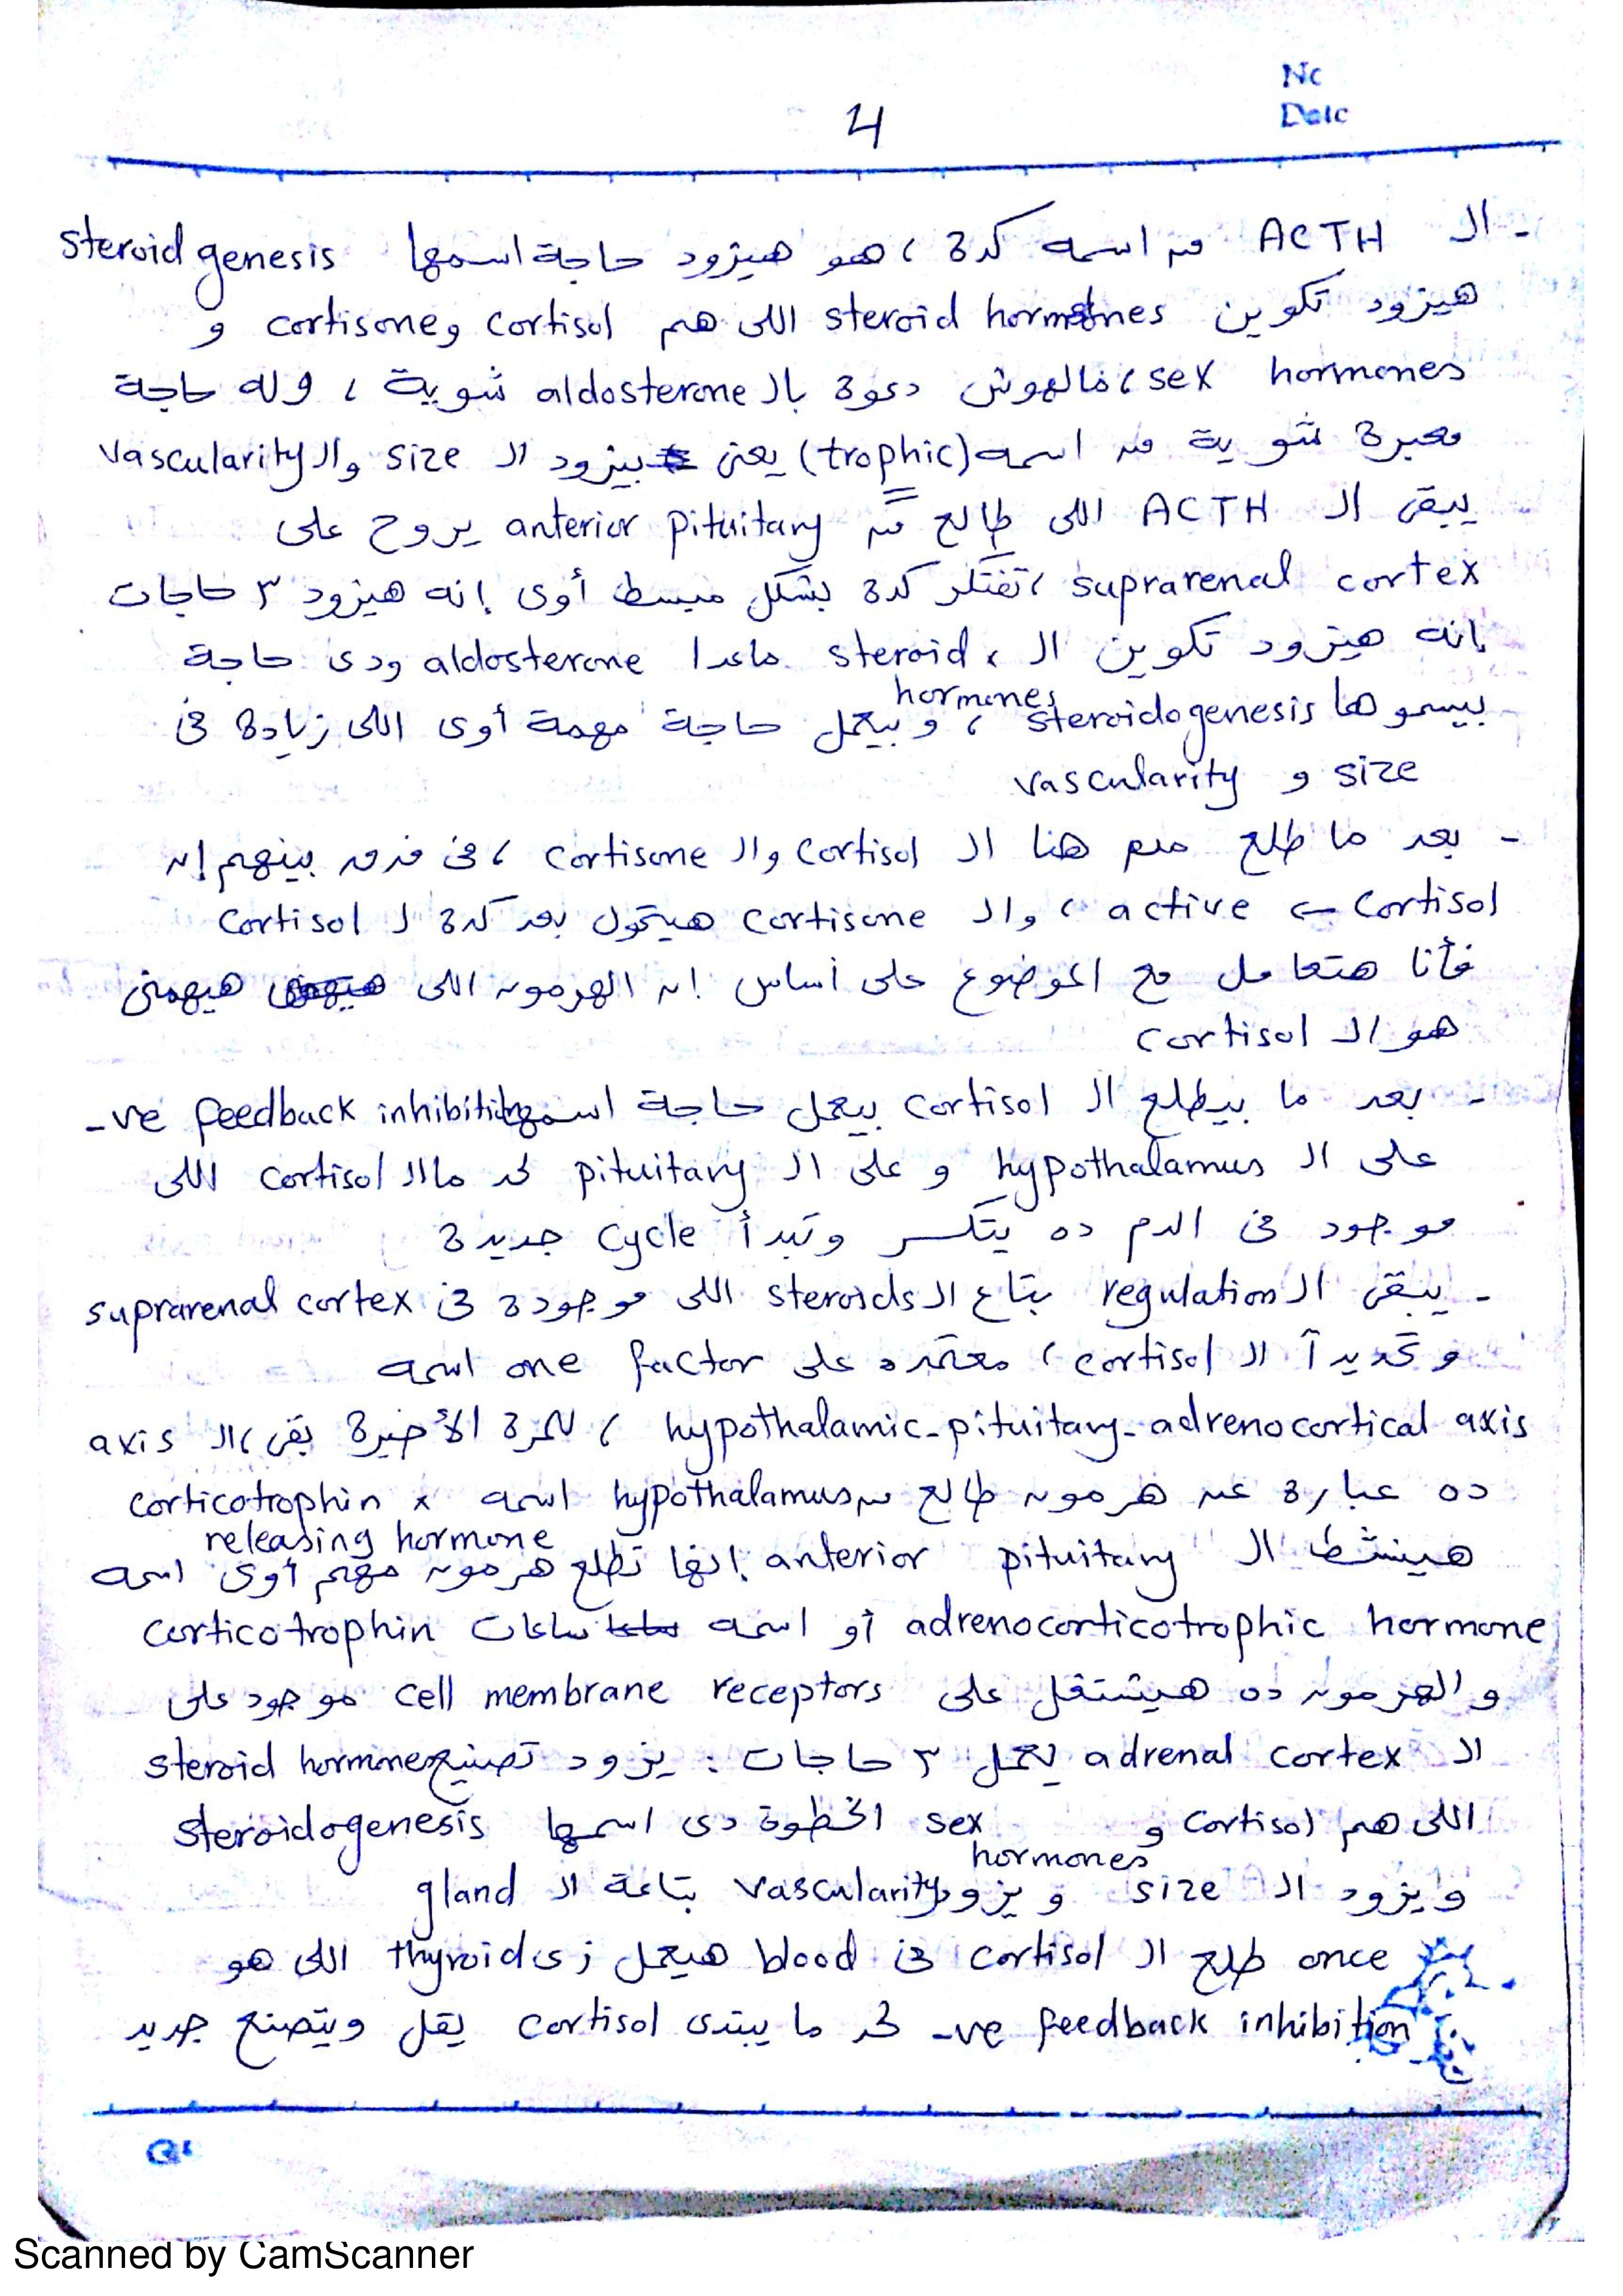 No
Date
4
- الـ ACTH من اسمه كدة ، هو هيزود حاجة اسمها steroid genesis
هيزود تكوين steroid hormones اللى هم cortisol و cortisone و
sex hormones ، مالهوش دعوة بالـ aldosterone شوية ، وله حاجة
معبرة شوية من اسمه (trophic) يعنى بيزود الـ size والـ vascularity
يبقى الـ ACTH اللى طالع من anterior pituitary يروح على
suprarenal cortex ، تفتكر كدة بشكل مبسط أوى إنه هيزود ٣ حاجات
إنه هيزود تكوين الـ steroid hormones ، ماعدا aldosterone ودى حاجة
بيسموها steroidogenesis ، و بيعمل حاجة مهمة أوى اللى زيادة فى
size و vascularity
- بعد ما طلع من هنا الـ cortisol والـ cortisone ، فى فرق بينهم إن
cortisol ← active ، والـ cortisone هيتحول بعد كدة لـ cortisol
فأنا هتعامل مع الموضوع على أساس إن الهرمون اللى هيهمنى
هو الـ cortisol
- بعد ما بيطلع الـ cortisol بيعمل حاجة اسمها -ve feedback inhibition
على الـ hypothalamus و على الـ pituitary لحد ما الـ cortisol اللى
موجود فى الدم ده يتكسر وتبدأ cycle جديدة
- يبقى الـ regulation بتاع الـ steroids اللى موجودة فى suprarenal cortex
و تحديداً الـ cortisol ، معتمده على one factor اسمه
hypothalamic-pituitary-adrenocortical axis ، للمرة الأخيرة بقى ، الـ axis
ده عبارة عن هرمون طالع من hypothalamus اسمه corticotrophin releasing hormone
هينشط الـ anterior pituitary إنها تطلع هرمون مهم أوى اسمه
adrenocorticotrophic hormone أو اسمه ساعات corticotrophin
و الهرمون ده هيشتغل على cell membrane receptors موجود على
الـ adrenal cortex يعمل ٣ حاجات : يزود تصنيع steroid hormones
اللى هم cortisol و sex hormones الخطوة دى اسمها steroidogenesis
و يزود الـ size و يزود vascularity بتاعة الـ gland
once طلع الـ cortisol فى blood هيعمل زى thyroid اللى هو
-ve feedback inhibition لحد ما يبتدى cortisol يقل ويتصنع جديد
Scanned by CamScanner